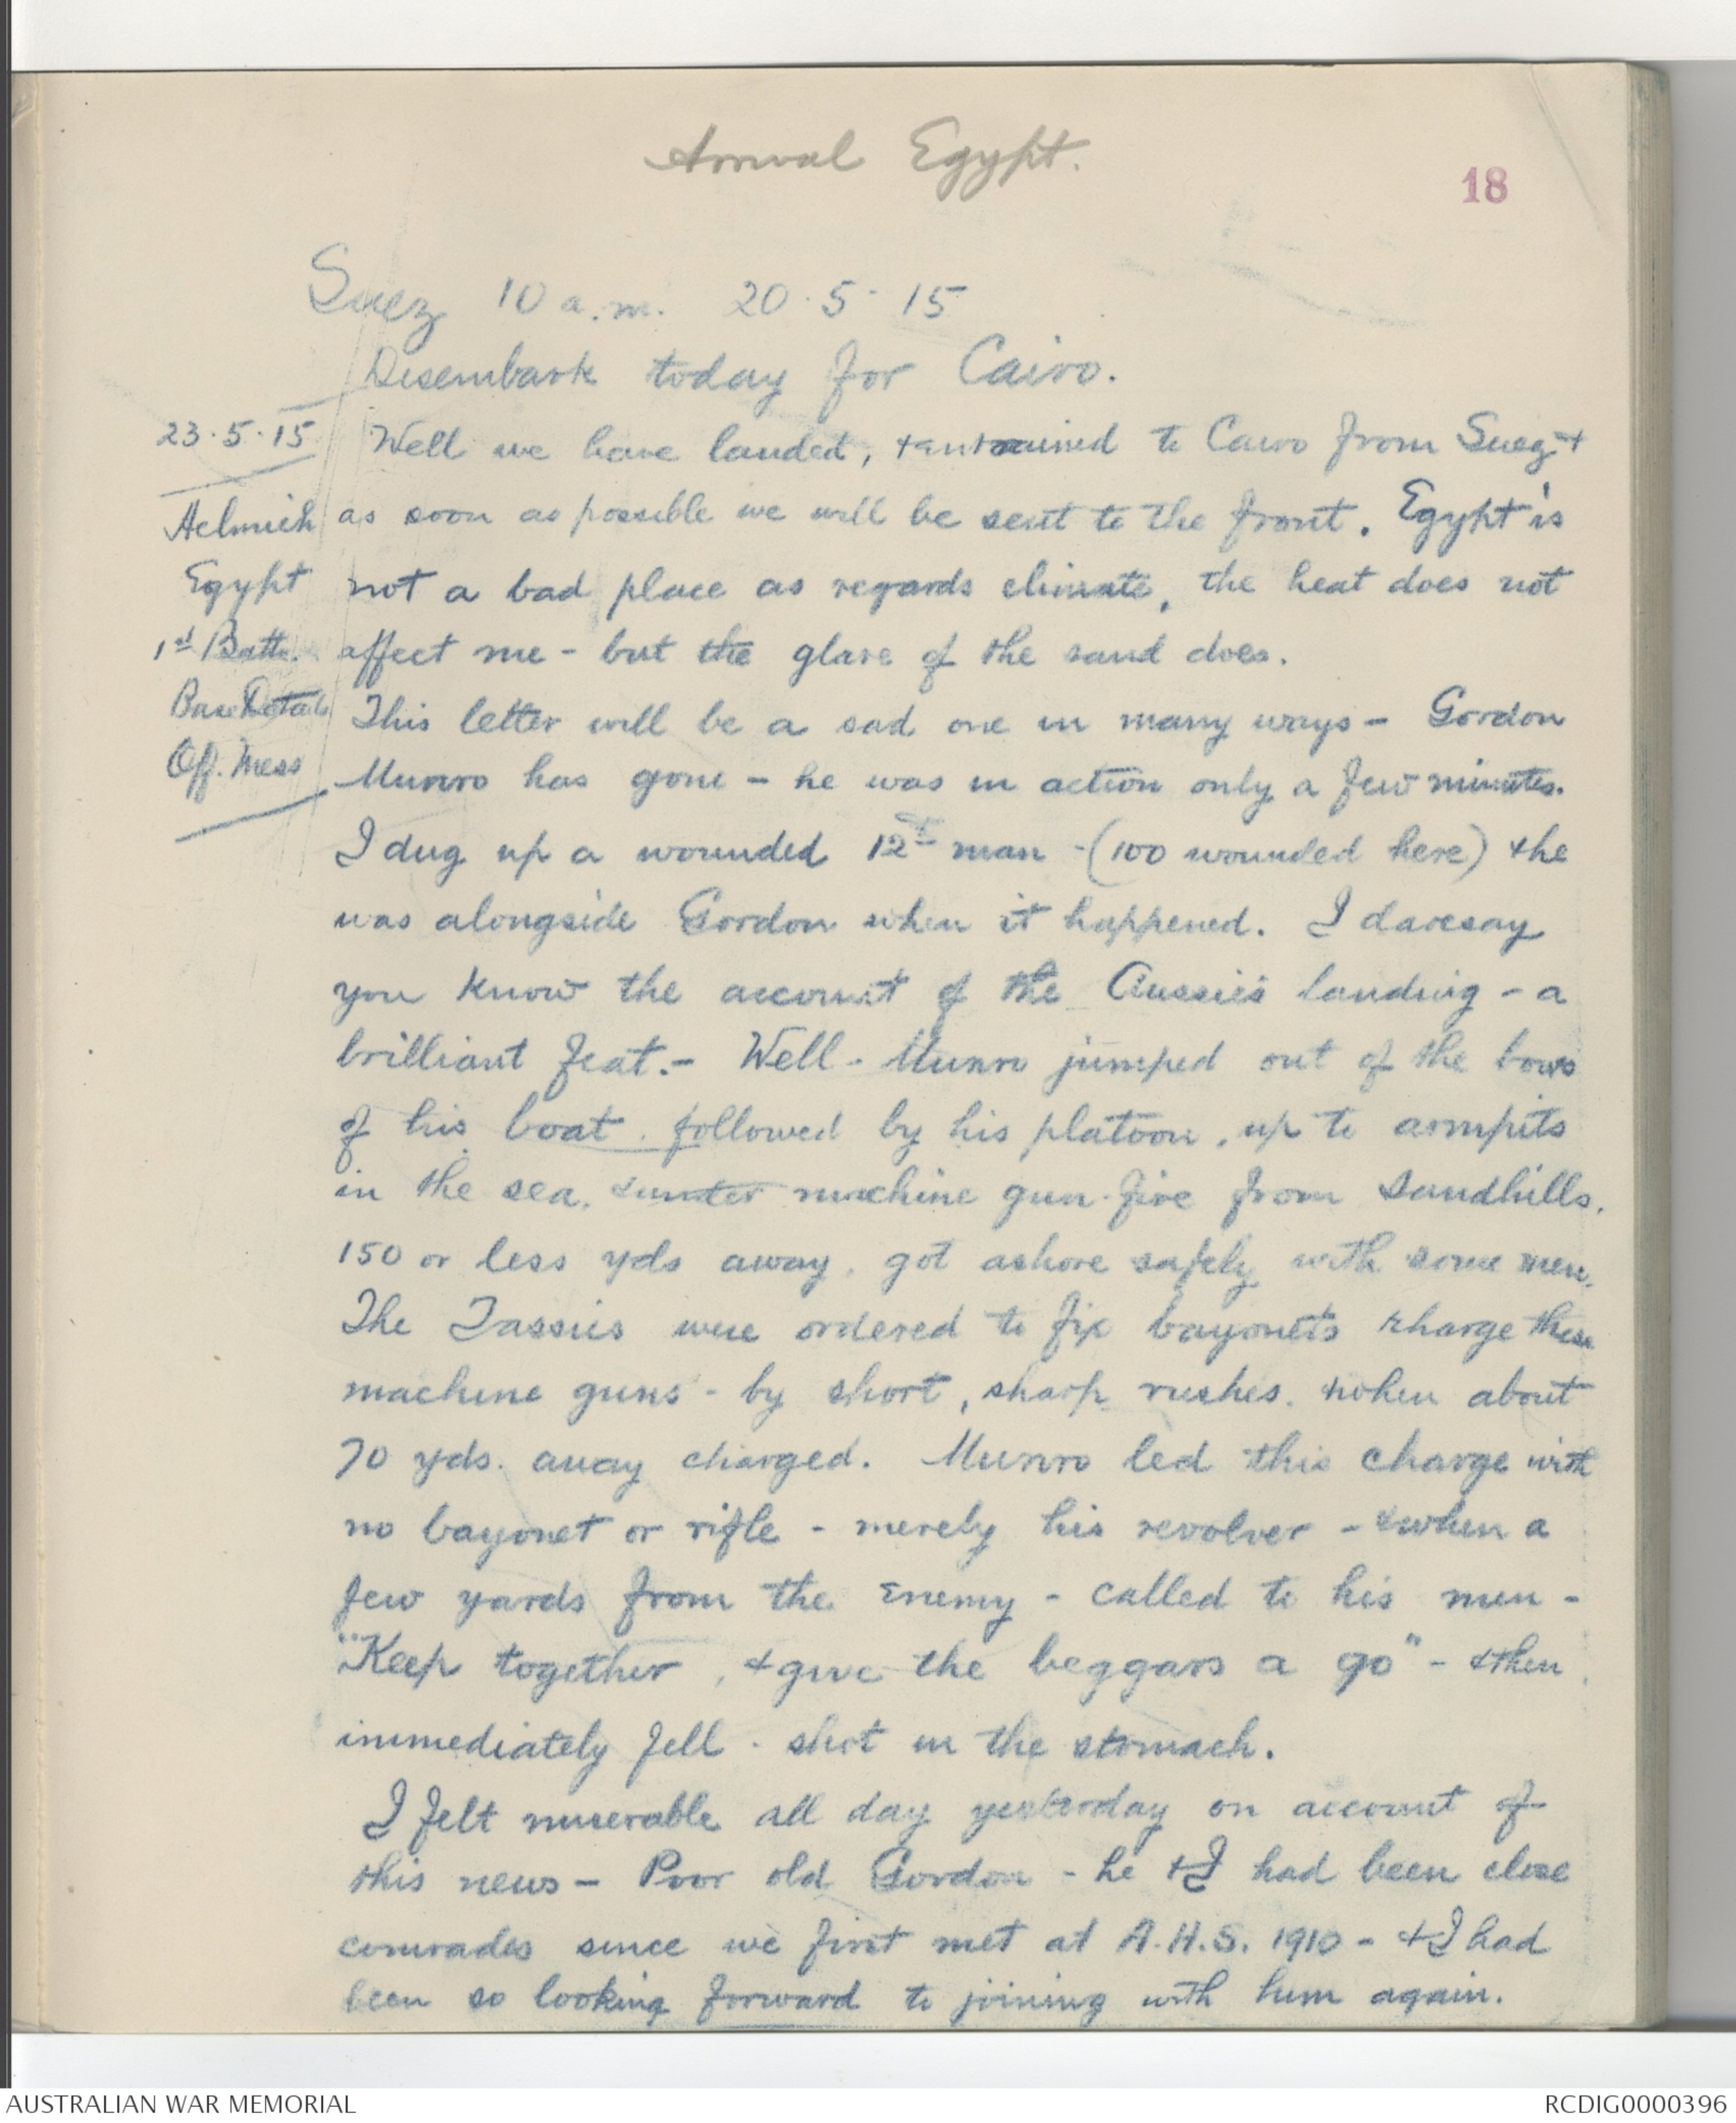 Arrival Egypt.
18
Suez 10 a.m. 20.5.15
Disembark today for Cairo.
23.5.15
Helmieh
Egypt
1st Battn.
Base Details
Off. Mess
Well we have landed, & entrained to Cairo from Suez &
as soon as possible we will be sent to the front. Egypt is
not a bad place as regards climate, the heat does not
affect me - but the glare of the sand does.
This letter will be a sad one in many ways - Gordon
Munro has gone - he was in action only a few minutes.
I dug up a wounded 12th man - (100 wounded here) & he
was alongside Gordon when it happened. I daresay
you know the account of the Aussies landing - a
brilliant feat. - Well - Munro jumped out of the bows
of his boat. followed by his platoon, up to armpits
in the sea, & under machine gun fire from sandhills.
150 or less yds away. got ashore safely with some men.
The Tassies were ordered to fix bayonets & charge these
machine guns - by short, sharp rushes. & when about
70 yds. away charged. Munro led this charge with
no bayonet or rifle - merely his revolver - & when a
few yards from the enemy - called to his men -
"Keep together, & give the beggars a go" - & then
immediately fell - shot in the stomach.
I felt miserable all day yesterday on account of
this news - Poor old Gordon - he & I had been close
comrades since we first met at A.H.S. 1910 - & I had
been so looking forward to joining with him again.
AUSTRALIAN WAR MEMORIAL
RCDIG0000396